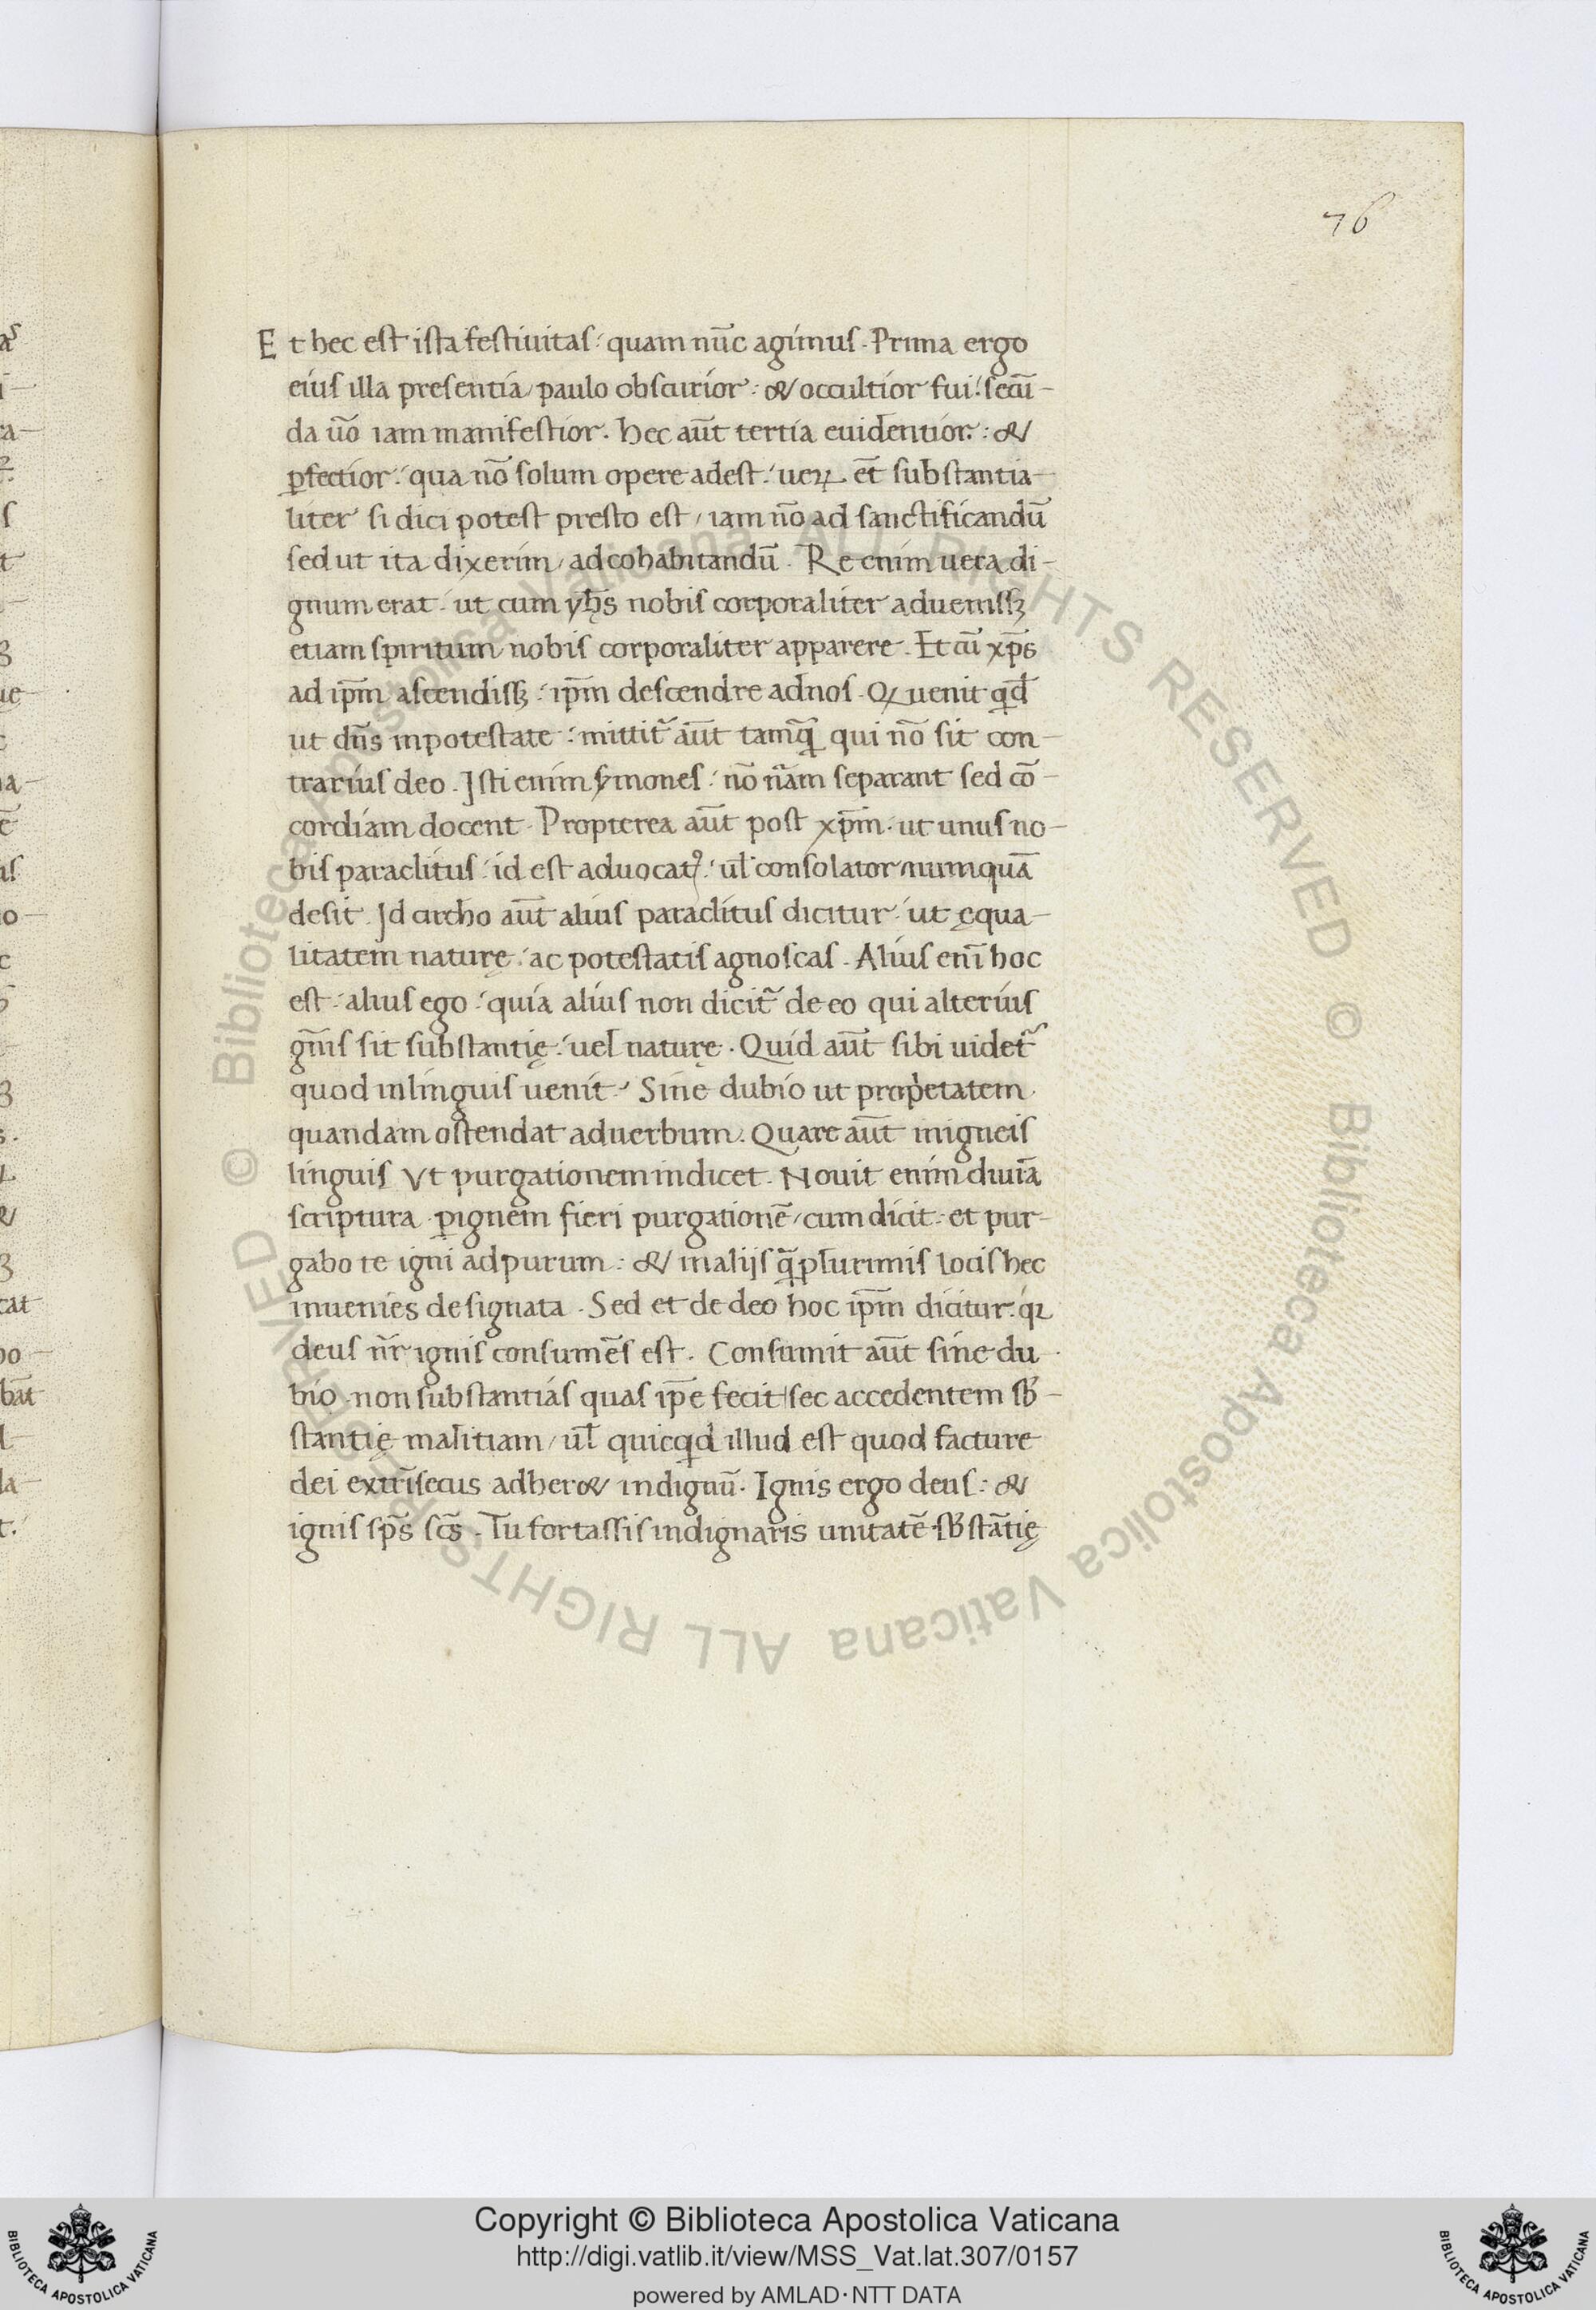 76
Et hec est ista festiuitas: quam nūc agimus. Prima ergo
eius illa presentia, paulo obscurior: & occultior fui: secū-
da ūo iam manifestior. hec aūt tertia euidentior: &
ꝑfectior: qua nō solum opere adest: ueꝝ et̄ substantia-
liter si dici potest presto est, iam nō ad sanctificandū
sed ut ita dixerim, ad cohabitandū. Re enim uera di-
gnum erat: ut cum yħs nobis corporaliter aduenissꝫ
etiam spiritum nobis corporaliter apparere. Et cū xp̄s
ad ip̄m ascendissꝫ: ip̄m descendre ad nos. Qꝛ uenit qd̄
ut dn̄s in potestate: mittit᷑ aūt tamꝙ̄ qui nō sit con-
trarius deo. Isti enim symones: nō nr̄am separant sed cō-
cordiam docent. Propterea aūt post xp̄m. ut unus no-
bis paraclitus: id est aduocatꝰ: ul̄ consolator nunquā
desit. Id circho aūt alius paraclitus dicitur: ut ęqua-
litatem naturę: ac potestatis agnoscas. Alius eni̅ hoc
est: alius ego: quia alius non dicit᷑ de eo qui alterius
gn̄is sit substantię: uel naturę. Quid aūt sibi uidet᷑
quod in linguis uenit. Sine dubio ut propetatem
quandam ostendat ad uerbum. Quare aūt in igneis
linguis Vt purgationem indicet. Nouit enim diuīa
scriptura ꝑ ignem fieri purgationē, cum dicit: et pur-
gabo te igni ad purum: & in alijs ꝙ̄plurimis locis hec
inuenies designata. Sed et de deo hoc ip̄m dicitur: qꝛ
deus nr̄ ignis consumēs est. Consumit aūt sine du
bio non substantias quas ip̄e fecit sec accedentem sƀ-
stantię malitiam, ul̄ quicqd̄ illud est quod facture
dei extrīsecus adher& indignū. Ignis ergo deus: &
ignis sp̄s sc̄s. Tu fortassis indignaris unitatē sƀstātię
Copyright © Biblioteca Apostolica Vaticana
http://digi.vatlib.it/view/MSS_Vat.lat.307/0157
powered by AMLAD·NTT DATA